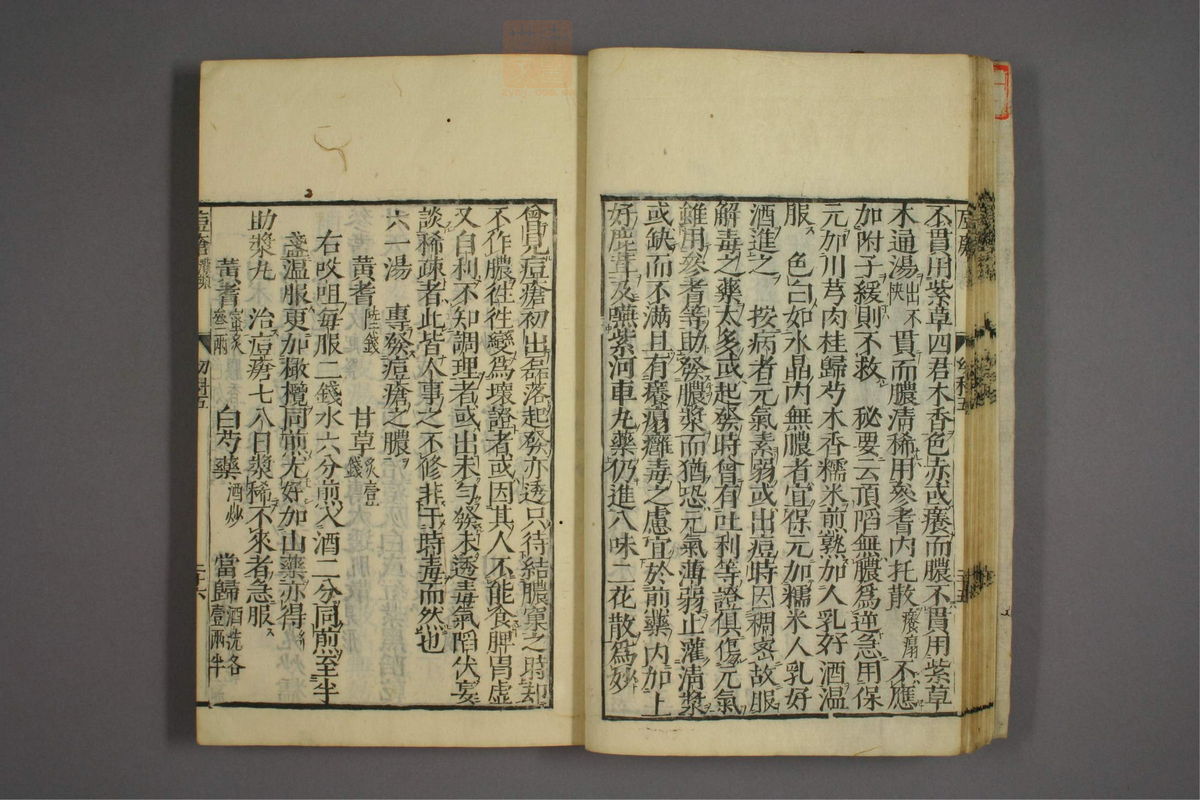 不貫用紫草四君木香色赤或癢而膿不貫用紫草
木通湯出不快貫而膿清稀用參耆內托散癢瘍不應
加附子緩則不救 秘要云頂陷無膿爲逆急用保
元加川芎肉桂歸芍木香糯米煎熟加人乳好酒温
服 色白如水晶內無膿者宜保元加糯米人乳好
酒進之 按病者元氣素弱或出痘時因稠密故服
解毒之藥太多或起發時曾有吐利等證俱傷元氣
雖用參耆等助發膿漿而猶恐元氣薄弱止灌清漿
或缺而不滿且有癢瘍癰毒之慮宜於前藥內加上
好鹿茸及嚥紫河車丸藥仍進八味二花散爲妙
曾見痘瘡初出磊落起發亦透只待結膿窠之時却
不作膿徃徃變爲壞證者或因其人不能食脾胃虛
又自利不知調理者或出未勻發未透毒氣陷伏妄
談稀疎者此皆人事之不修非于時毒而然也
六一湯 專發痘瘡之膿
黃耆 甘草炙壹錢
右㕮咀每服二錢水六分煎入酒二分同煎至半
盞温服更加橄欖同煎尤好加山藥亦得
助漿丸 治痘瘡七八日漿稀不來者急服
黃耆蜜炙叁兩 白芍藥酒炒 當歸酒洗各壹兩半